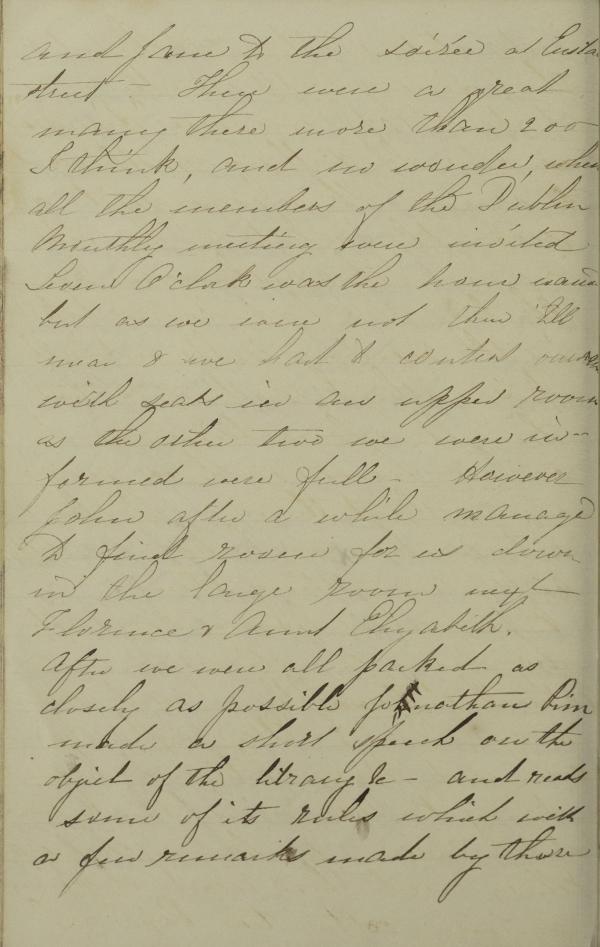 and Jane to the soirée at Eusta
street - There were a great
many there more than 200
I think, and no wonder, when
all the members of the Dublin
Monthly meeting were invited
Seven O'clock was the hour named
but as we were not there till
near 8 we had to content ourselves
with seats in an upper room
as the other two we were in-
formed were full - However
John after a while managed
to find room for us down
in the large room next
Florence & Aunt Elizabeth.
After we were all packed as
closely as possible Jonathan Pim
made a short speech on the
object of the library &c - and reads
some of its rules which with
a few remarks made by those